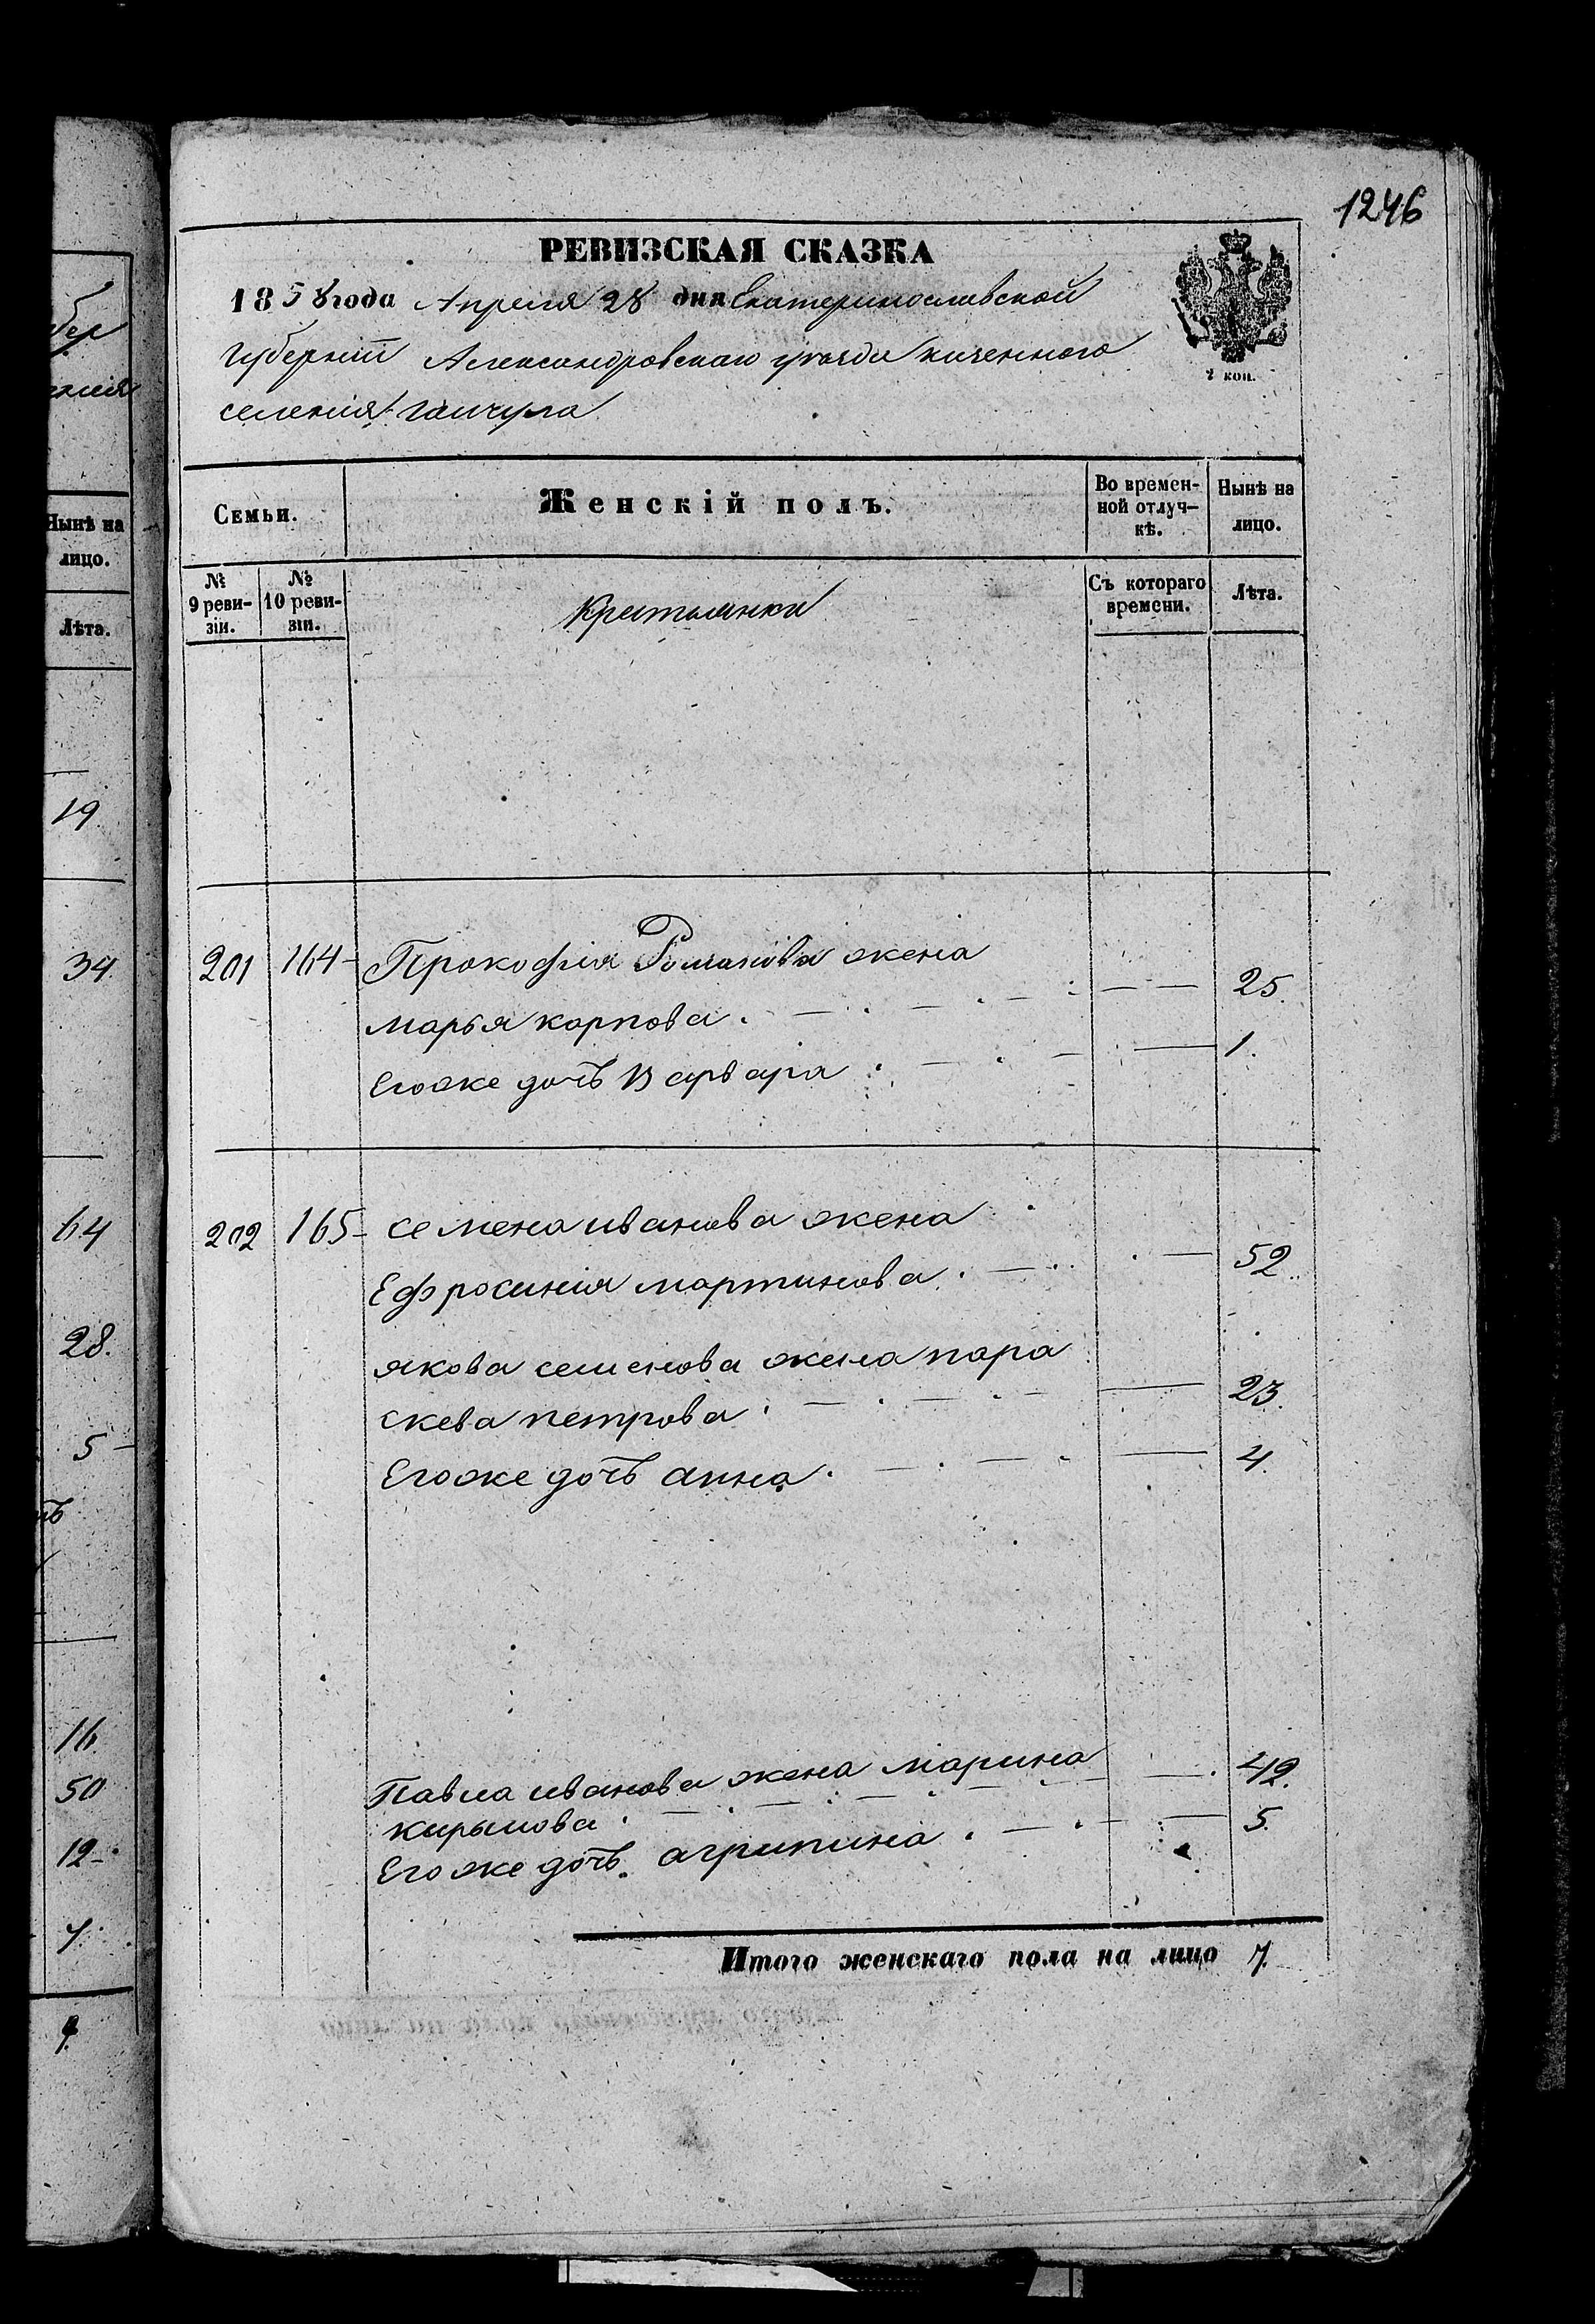 1246
РЕВИЗСКАЯ СКАЗКА
1858 года Апреля 28 дня Екатеринославской
Губерніи Александровскаго уезда казенного
селенія Гайчула
2 коп.
Семьи. Женскій полъ. Во времен- Нынѣ на
ной отлуч- лицо.
кѣ.
№ № Съ котораго Лѣта.
9 реви- 10 реви- времени.
зіи. зіи.
Крестьянки
201 164 - Прокофия Романова жена
Марья карпова . — . — . — 25.
Егоже дочь Варвара . — . — 1.
202 165 - семена иванова жена
Ефросиния мартинова . — . — 52.
якова семенова жена пара
скева петрова . — . — . — 23.
Егоже дочь анна . — . — . — 4.
Павла иванова жена марина 42.
кирилова . — . — . — .
Егоже дочь агрипина . — . — 5.
Итого женскаго пола на лицо 7.
бер
Нынѣ на
лицо.
Лѣта.
19
34.
64
28.
5 -
16.
50
12 -